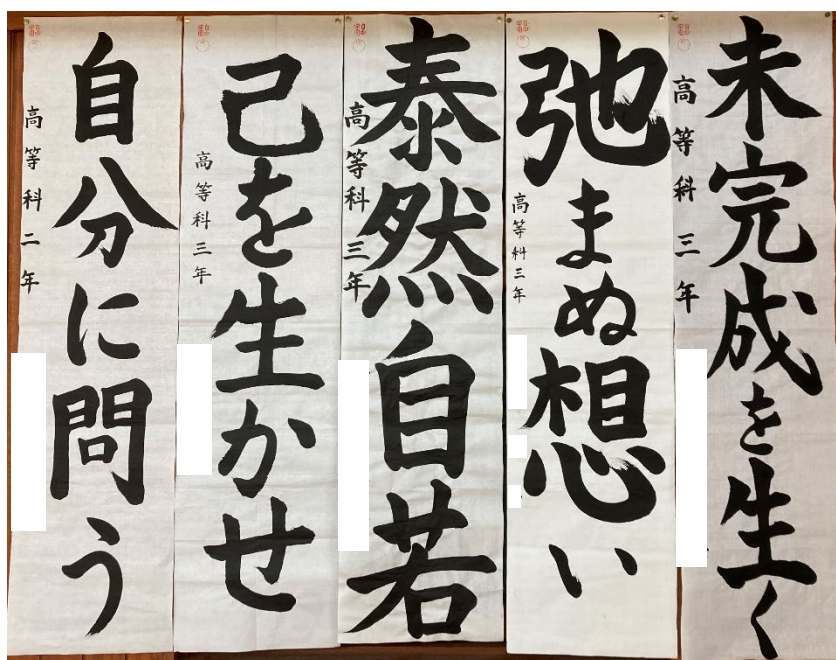 未完成を生く
高等科三年
弛まぬ想い
高等科三年
泰然自若
高等科三年
己を生かせ
高等科三年
自分に問う
高等科二年